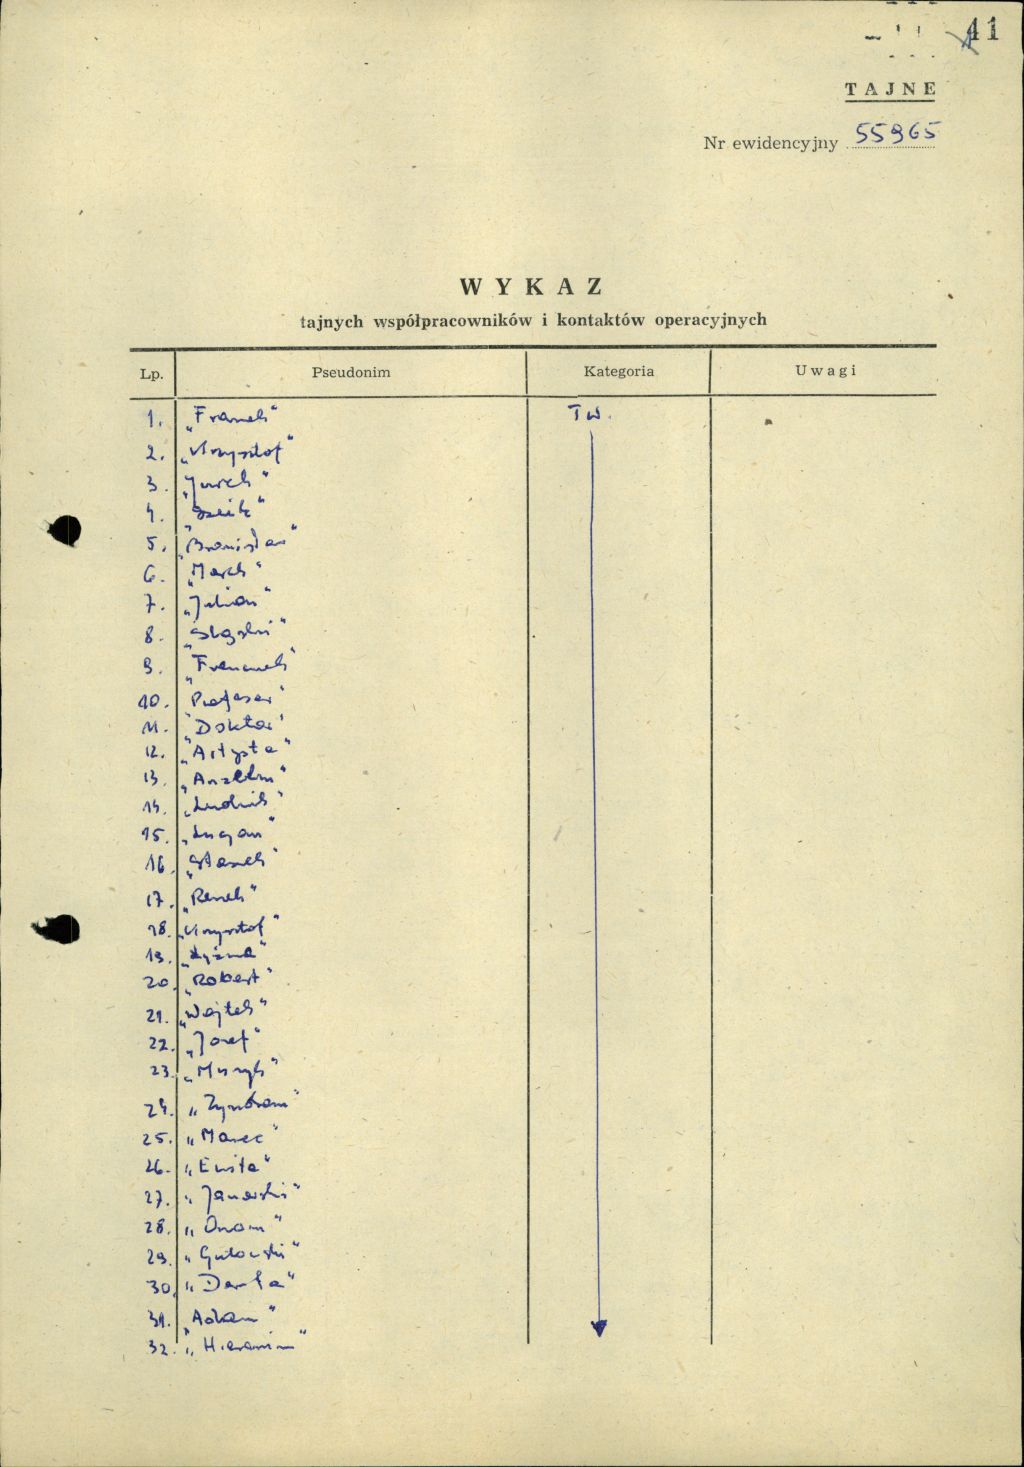 41
TAJNE
Nr ewidencyjny 55965
WYKAZ
tajnych współpracowników i kontaktów operacyjnych
Lp. Pseudonim Kategoria Uwagi
1. „Franek" TW.
2. „Krzysztof"
3. „Jurek"
4.
5. „Bronisław"
6. „Marek"
7. „Julian"
8. „Śląski"
9. „Franciszek"
10. „Profesor"
11. „Doktor"
12. „Artysta"
13. „Anzelm"
14. „Ludwik"
15. „Lucjan"
16. „Staszek"
17. „Renek"
18. „Krzysztof"
19.
20. „Robert"
21. „Wojtek"
22. „Józef"
23. „Muzyk"
24. „Zyndram"
25. „Marec"
26. „Ewita"
27. „Janowski"
28.
29. „Gutowski"
30.
31. „Adam"
32. „Hieronim"